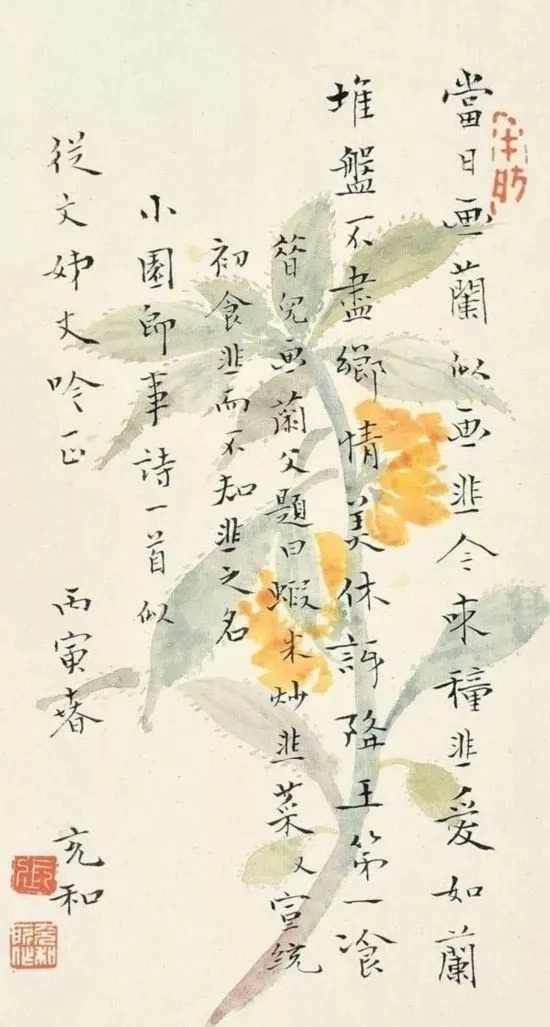 當日画蘭似画韭今来種韭愛如蘭
堆盤不盡鄉情美休訝降王第一飡
兒画蘭父題曰蝦米炒韭菜又宣統
初食韭而不知韭之名
小園即事詩一首似
從文姊丈吟正
丙寅春 充和